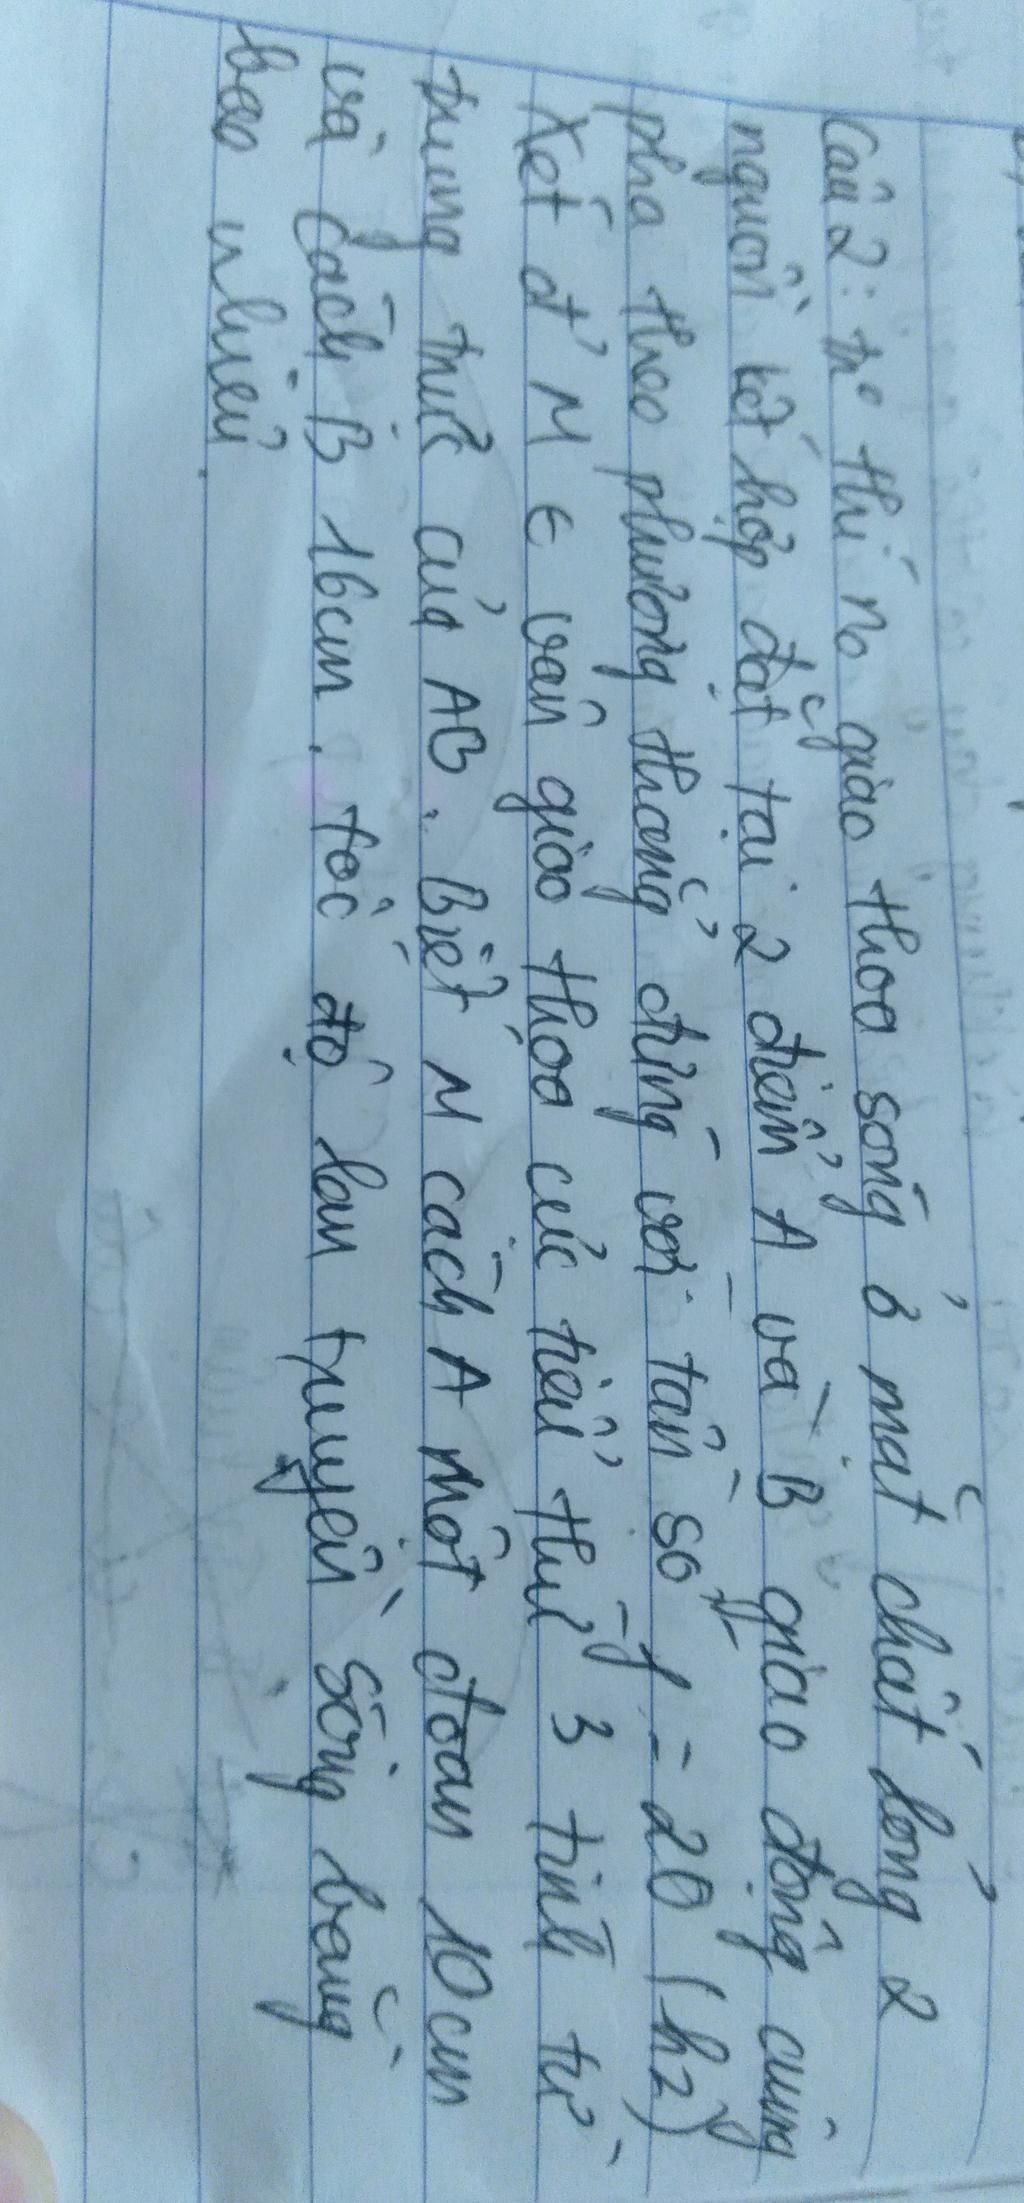 Câu 2: tro thí no giao thoa sóng ở mặt chất lỏng 2
nguồn kết hợp đặt tại 2 điểm A và B giao động cùng
pha theo phương thẳng đứng với tần số f = 20 (hz)
Xét đ' M ∈ vân giao thoa cực tiểu thứ 3 tính từ
trung trực của AB. Biết M cách A một đoạn 10cm
và cách B 16cm. tốc độ lan truyền sóng bằng
bao nhiêu.